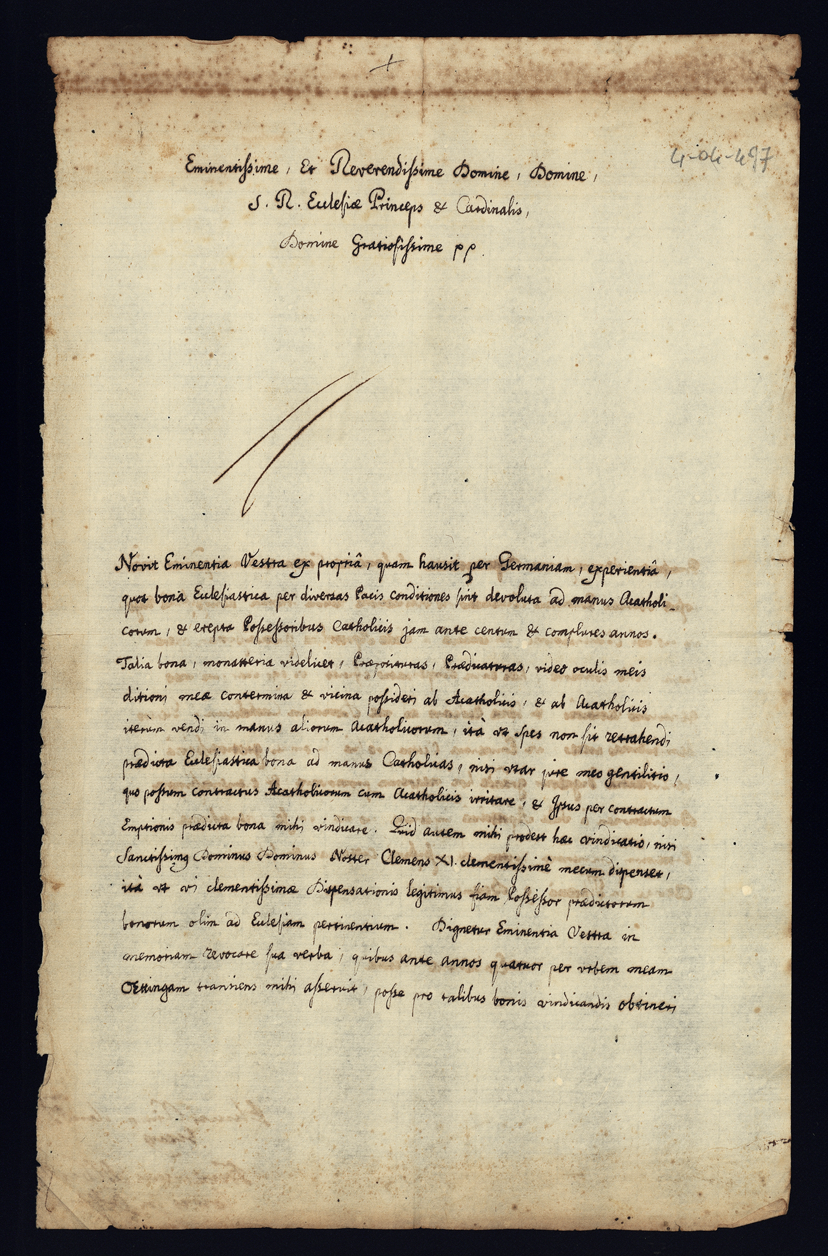 +
4-04-497
Eminentissime, Et Reverendissime Domine, Domine,
S. R. Eccleſiæ Princeps & Cardinalis,
Domine Gratiosissime pp.
Novit Eminentia Vestra ex propriâ, quam hausit per Germaniam, experientiâ,
quot bona Ecclesiastica per diversas Pacis conditiones sint devoluta ad manus Acatholi-
corum, & erepta Possessoribus Catholicis jam ante centum & complures annos.
Talia bona, monasteria videlicet, Præpositutas, Prædicaturas, video oculis meis
ditioni meæ contermina & vicina possideri ab Acatholicis, & ab Acatholicis
iterùm vendi in manus aliorum Acatholicorum, ità vt spes non sit retrahendi
prædicta Ecclesiastica bona ad manus Catholicas, nisi vtar jure meo gentilitio,
quo possum contractus Acatholicorum cum Acatholicis irritare, & Jpsus per contractum
Emptionis prædicta bona mihi vindicare. Quid autem mihi prodest hæc vindicatio, nisi
Sanctissimus Dominus Dominus Noster Clemens XI. clementissimè mecum dispenset,
ità vt vi clementissimæ Dispensationis legitimus fiam Possessor prædictorum
bonorum olim ad Ecclesiam pertinentium. Dignetur Eminentia Vestra in
memoriam revocare sua verba, quibus ante annos quatuor per vrbem meam
Oettingam transiens mihi asseruit, posse pro talibus bonis vindicandis obtineri